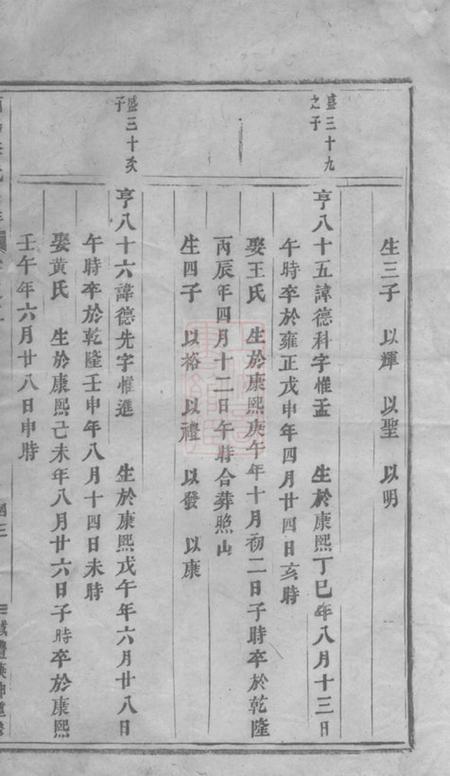 生三子 以輝 以聖 以明
盛三十九
之子
亨八十五諱德科字惟孟 生於康熙丁巳年八月十三日
午時卒於雍正戊申年四月廿四日亥時
娶王氏 生於康熙庚午年十月初二日子時卒於乾隆
丙辰年四月十二日午時合葬照山
生四子 以裕 以禮 以發 以康
盛三十次
子
亨八十六諱德先字惟進 生於康熙戊午年六月廿八日
午時卒於乾隆壬申年八月十四日未時
娶黃氏 生於康熙己未年八月廿六日子時卒於康熙
壬午年六月廿八日申時
咸豐庚申重修